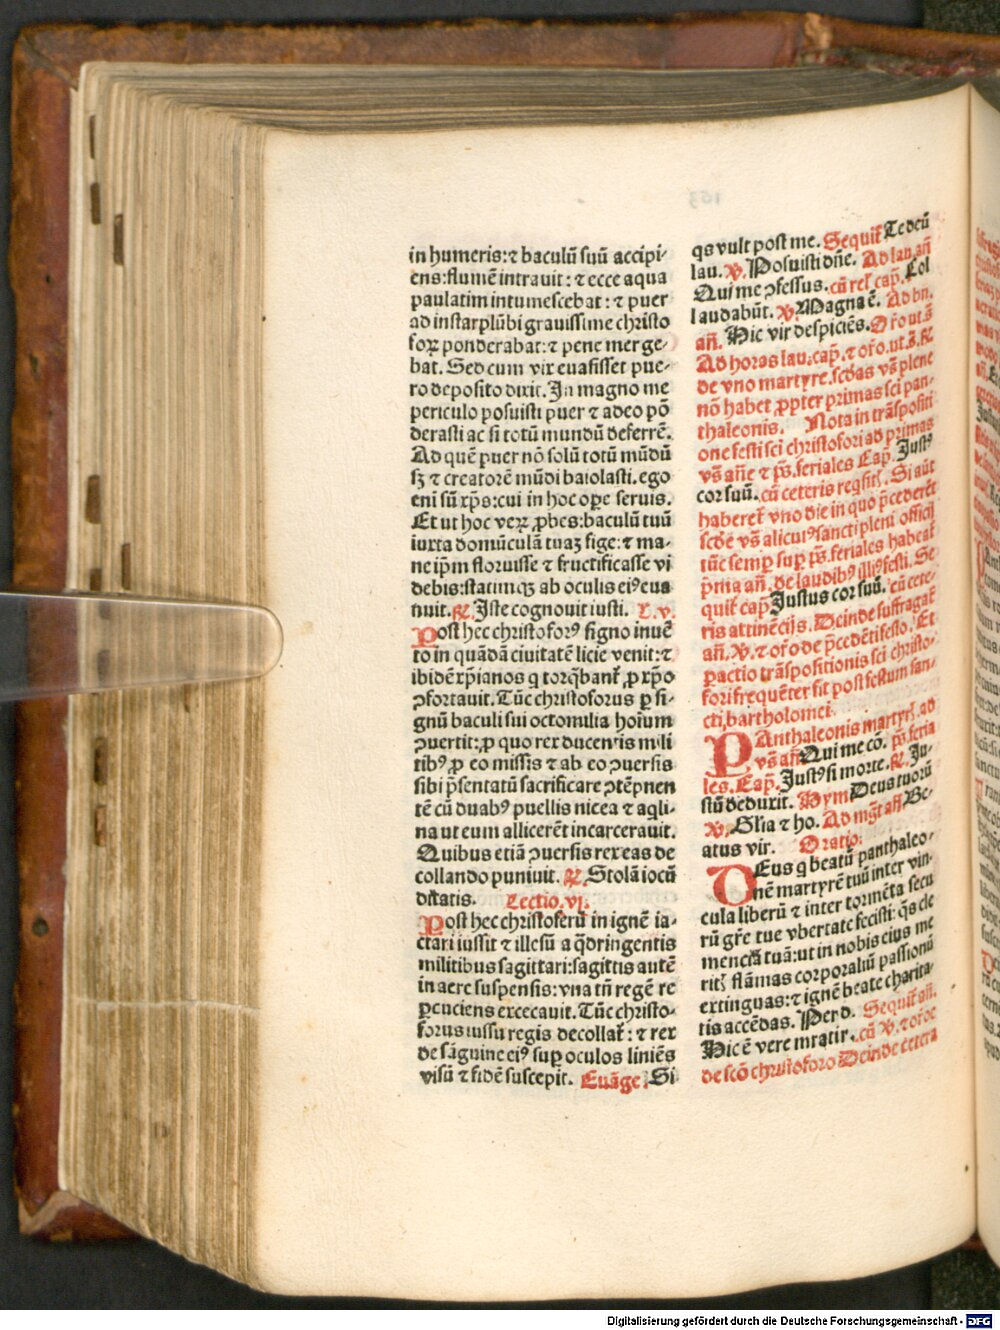 in humeris: ⁊ baculū suū accipi⸗
ens: flumē intrauit: ⁊ ecce aqua
paulatim intumescebat: ⁊ puer
ad instar plūbi grauissime christo
foꝝ ponderabat: ⁊ pene merge⸗
bat. Sed cum vix euasisset pue⸗
ro deposito dixit. In magno me
periculo posuisti puer ⁊ adeo pō
derasti ac si totū mundū deferrē.
Ad quē puer nō solū totū mūdū
sꝫ ⁊ creatorē mūdi baiolasti. ego
eni sū xp̄s: cui in hoc oꝑe seruis.
Et ut hoc veꝝ ꝓbes: baculū tuū
iuxta domūculā tuaꝫ fige: ⁊ ma⸗
ne ip̄m floruisse ⁊ fructificasse vi
debis: statimqꝫ ab oculis eiꝰ eua
nuit. ꝶ. Iste cognouit iusti. L. v.
Post hec christoforꝰ signo inuē
to in quādā ciuitatē licie venit: ⁊
ibidē xp̄ianos q torq̄banť ꝓ xp̄o
ↄfortauit. Tūc christoforus ꝑ si⸗
gnū baculi sui octo milia hoīum
ↄuertit: ꝓ quo rex ducentis mili
tibꝰ ꝓ eo missis ⁊ ab eo ↄuersis
sibi p̄sentatū sacrificare ↄtēpnen
tē cū duabꝰ puellis nicea ⁊ aqli⸗
na ut eum allicerēt incarcerauit.
Quibus etiā ↄuersis rex eas de
collando puniuit. ꝶ. Stolā iocū
ditatis. Lectio. vj.
Post hec christoferū in ignē ia⸗
ctari iussit ⁊ illesū a q̄dringentis
militibus sagittari: sagittis autē
in aere suspensis: vna tn̄ regē re
ꝑcuciens excecauit. Tūc christo⸗
forus iussu regis decollať: ⁊ rex
de sāguine eiꝰ suꝑ oculos liniēs
visū ⁊ fidē suscepit. Euāge. Si
qs vult post me. Sequiť Te deū
lau. ℣. Posuisti dn̄e. Ad lau. an̄
Qui me ↄfessus. cū rel' cap̄. Col
laudabūt. ℣. Magna ē. Ad bn̄.
an̄. Hic vir despiciēs. Or̄o ut s̄
Ad horas lau. cap̄. ⁊ or̄o. ut s̄. ꝶ
de vno martyre. scd̄as vs̄ plene
nō habet ꝓpter primas sci pan⸗
thaleonis. Nota in trāspositi
one festi sci christofori ad primas
vs̄ an̄e ⁊ ps̄. feriales Cap̄. Justꝰ
cor suū. cū ceteris reqsitꝭ. Si aūt
haberet vno die in quo p̄cederēt
scd̄e vs̄ alicuiꝰ sancti pleni officij
tūc semꝑ suꝑ ps̄. feriales habeať
p̄ma an̄. de laudibꝰ illiꝰ festi. Se
quiť cap̄ Justus cor suū. cū cete⸗
ris attinēcijs. Deinde suffragať
an̄. ℣. ⁊ or̄o de p̄cedēti festo. Et
ꝑactio trāspositionis sci christo⸗
fori frequēter fit post festum san⸗
cti bartholomei.
PAnthaleonis martyrꝭ. ad
vs̄ an̄ Qui me cō. ps̄. feria
les. Cap̄. Justꝰ si morte. ꝶ. Ju⸗
stū deduxit. Hym̄ Deus tuorū
℣. Glīa ⁊ ho. Ad mḡt an̄ Be⸗
atus vir. Oratio.
DEus q beatū panthaleo⸗
nē martyrē tuū inter vin⸗
cula liberū ⁊ inter tormēta secu
rū gr̄e tue vbertate fecisti: q̄s cle
menciā tuā: ut in nobis eius me
ritꝭ flāmas corporaliū passionū
extinguas: ⁊ ignē beate charita⸗
tis accēdas. Per d. Sequiť an̄.
Hic ē vere mr̄atir. cū ℣. ⁊ or̄oe
de scō christoforo Deinde cetera
Digitalisierung gefördert durch die Deutsche Forschungsgemeinschaft - DFG